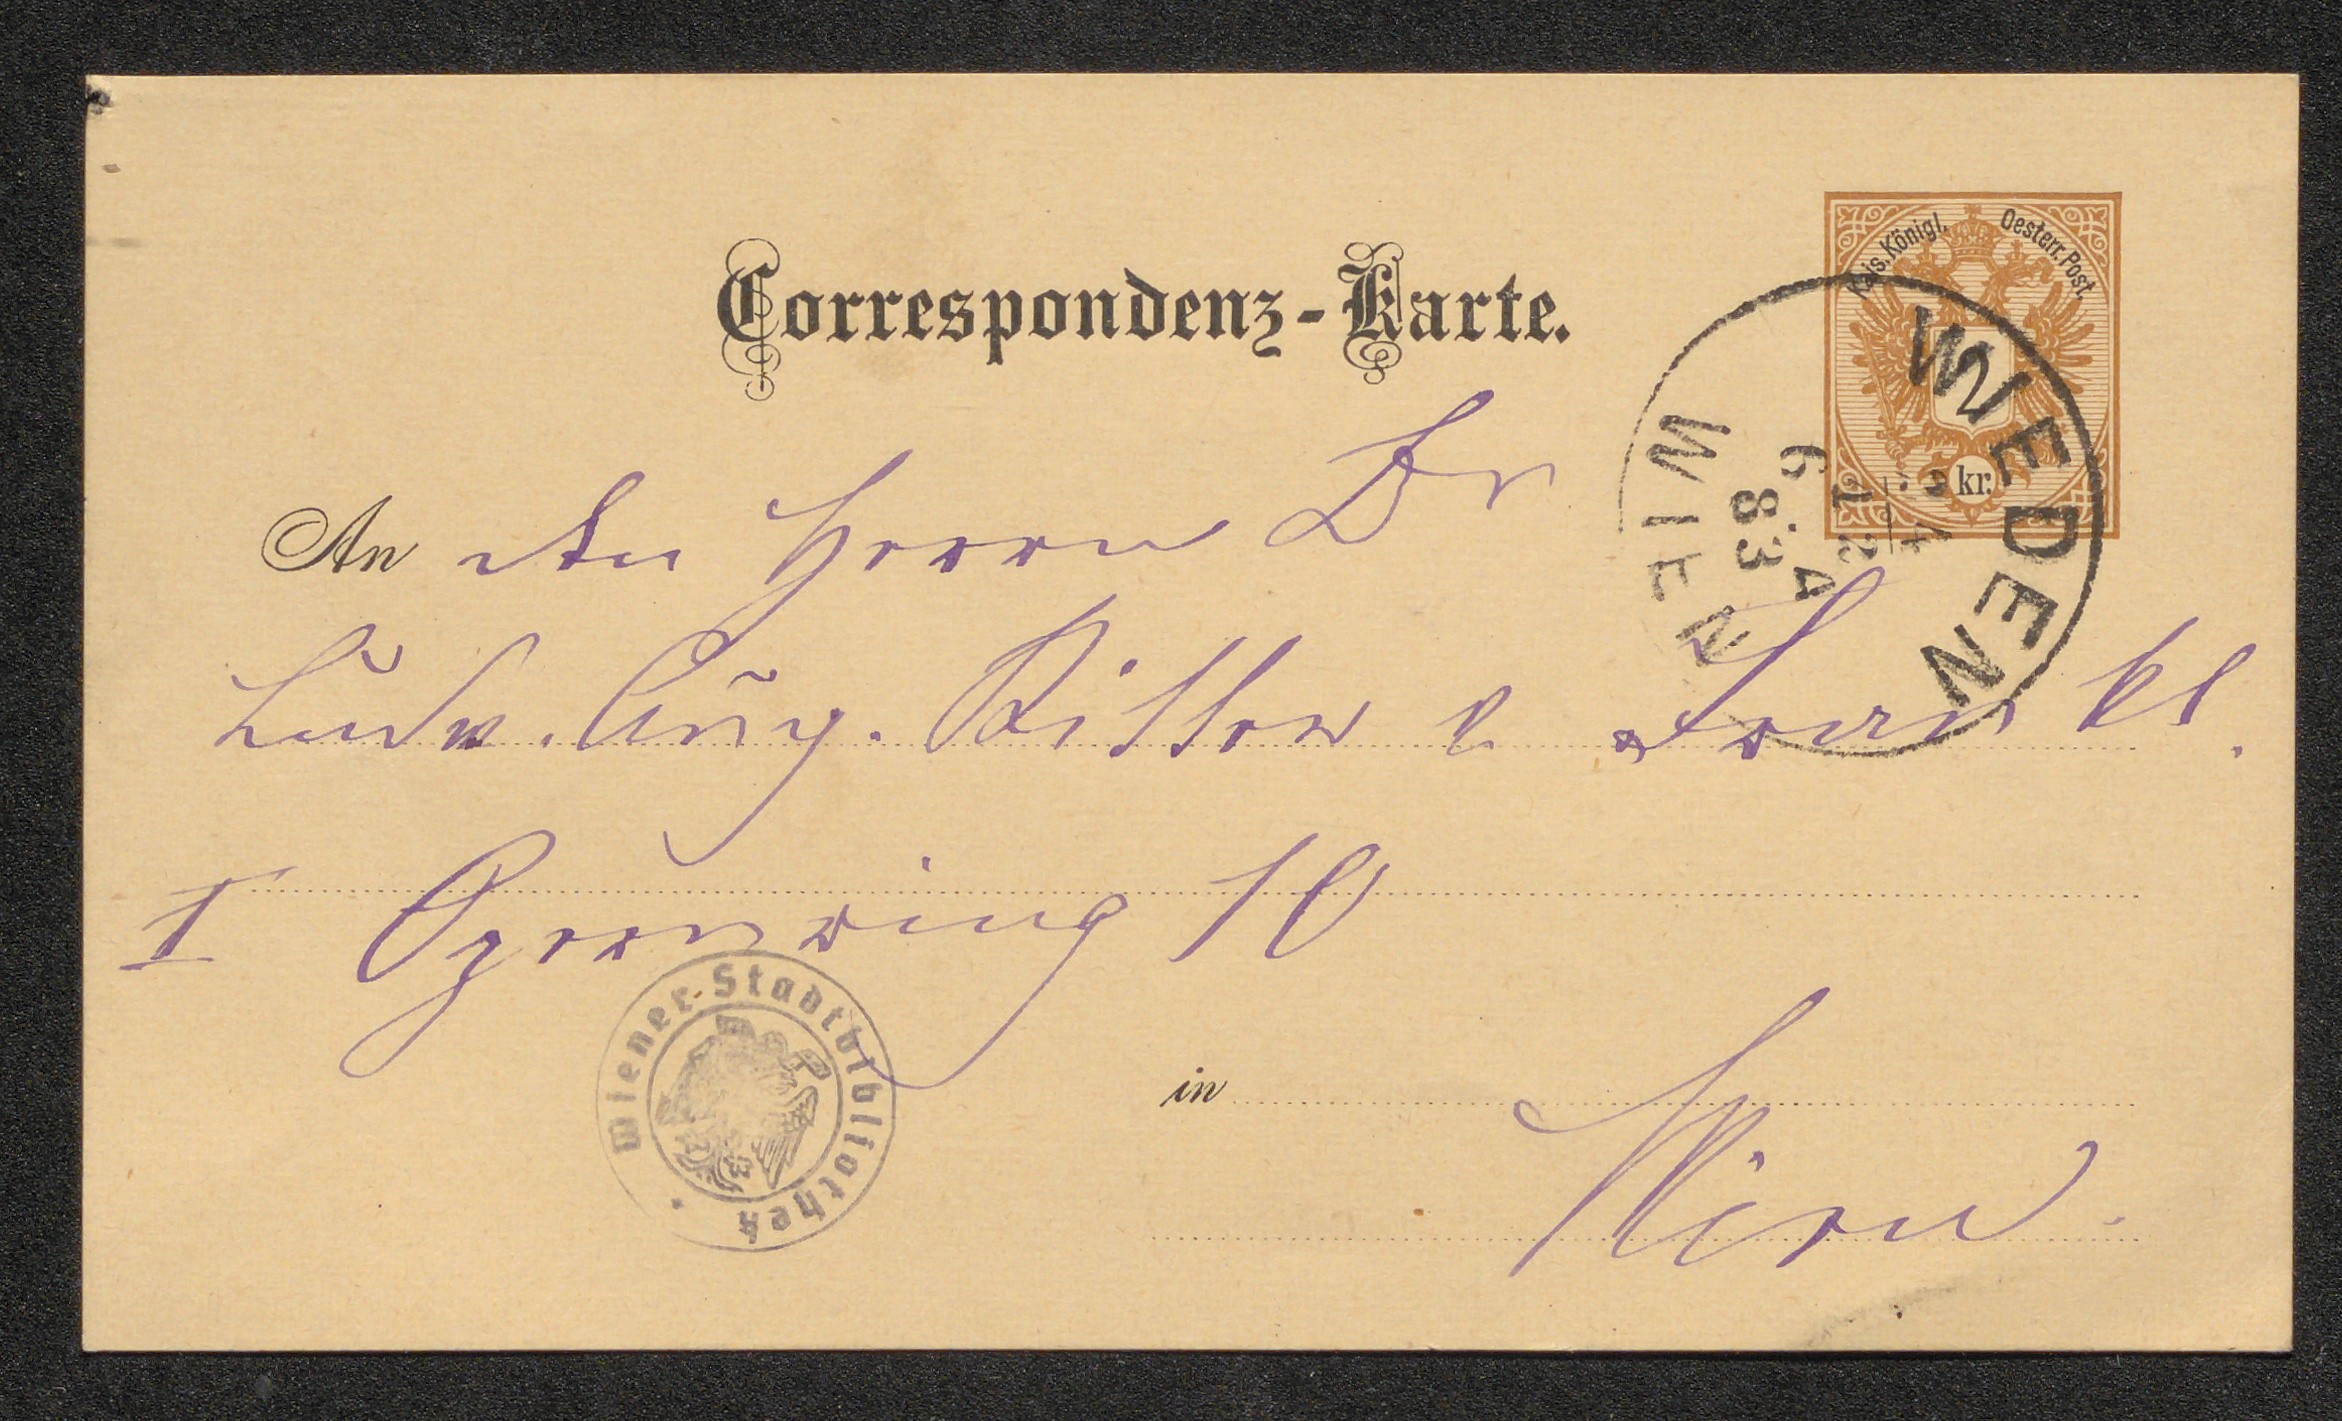 Kais. Königl. Oesterr. Post.
2
kr.
Correspondenz-Karte.
WIEDEN
24
12
83
6 A
WIEN
An den Herrn Dr
Ludw. Aug. Ritter v Frankl.
I Opernring 10
in
Wien.
Wiener Stadtbibliothek